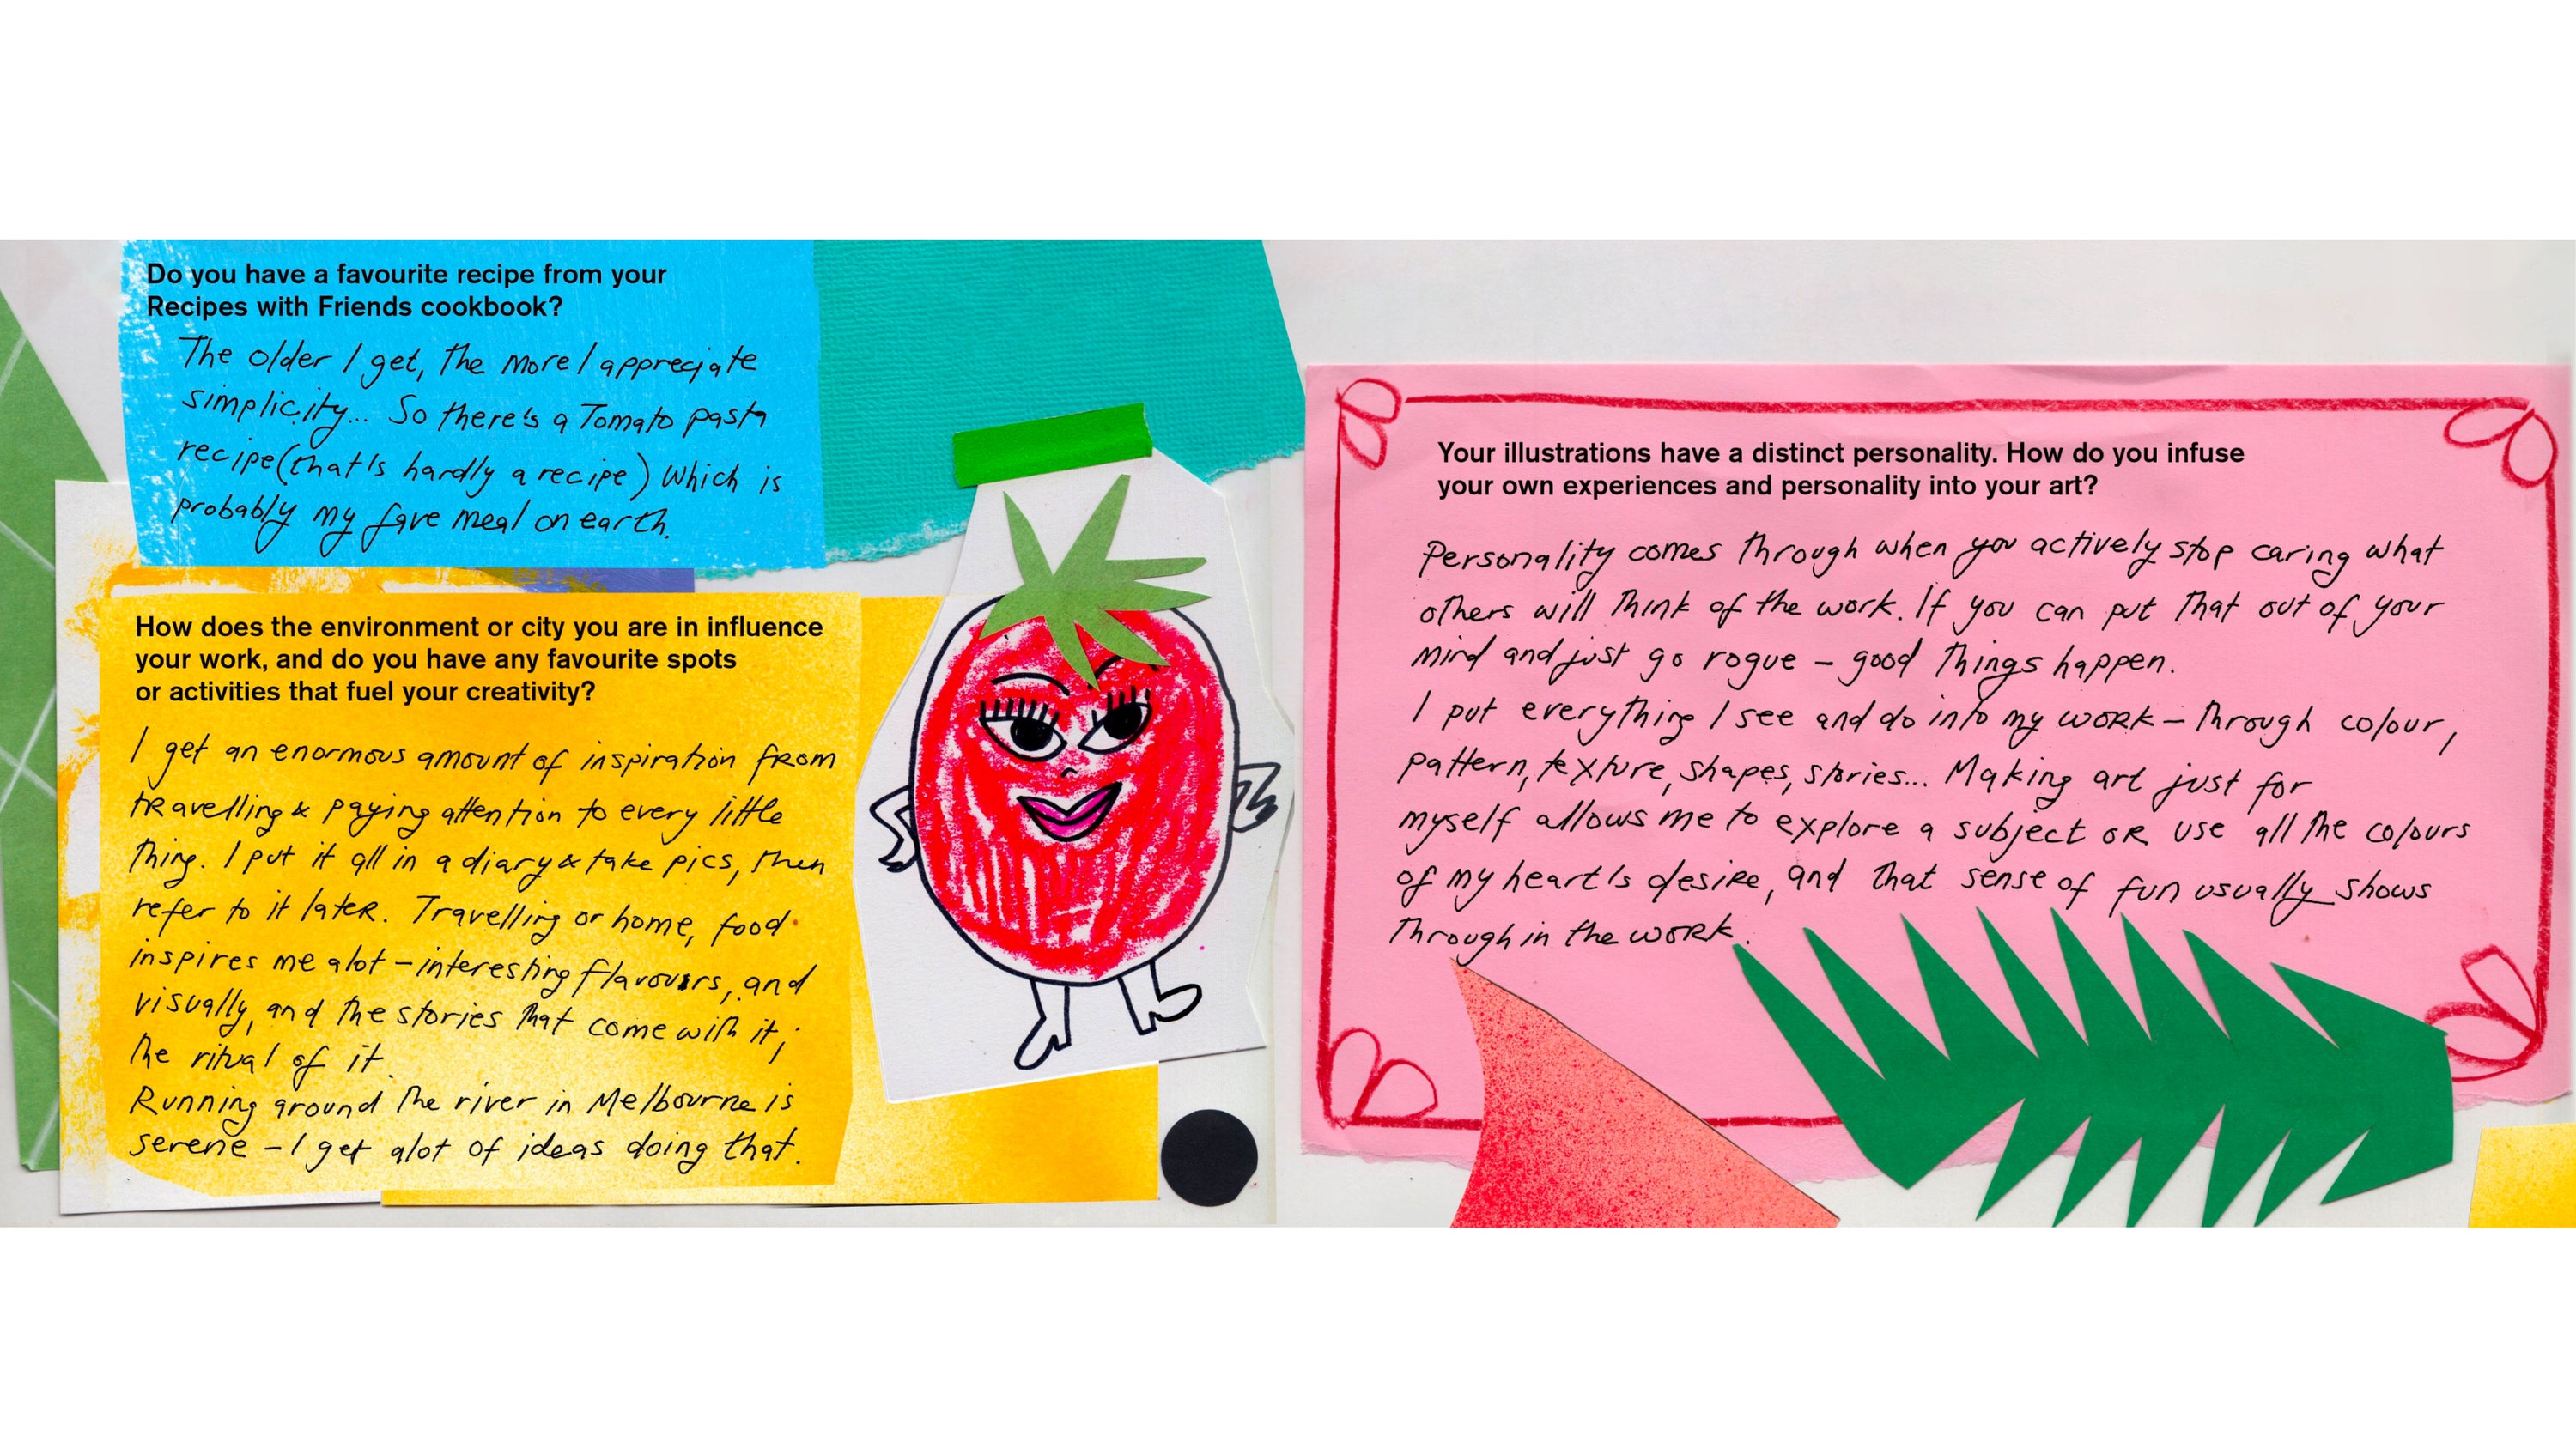 Do you have a favourite recipe from your
Recipes with Friends cookbook?
The older I get, the more I appreciate
simplicity... So there's a Tomato pasta
recipe (that's hardly a recipe) which is
probably my fave meal on earth.
How does the environment or city you are in influence
your work, and do you have any favourite spots
or activities that fuel your creativity?
I get an enormous amount of inspiration from
travelling & paying attention to every little
thing. I put it all in a diary & take pics, then
refer to it later. Travelling or home, food
inspires me alot – interesting flavours, and
visually, and the stories that come with it;
the ritual of it.
Running around the river in Melbourne is
serene – I get alot of ideas doing that.
Your illustrations have a distinct personality. How do you infuse
your own experiences and personality into your art?
Personality comes through when you actively stop caring what
others will think of the work. If you can put that out of your
mind and just go rogue – good things happen.
I put everything I see and do into my work – through colour,
pattern, texture, shapes, stories... Making art just for
myself allows me to explore a subject or use all the colours
of my heart's desire, and that sense of fun usually shows
through in the work.